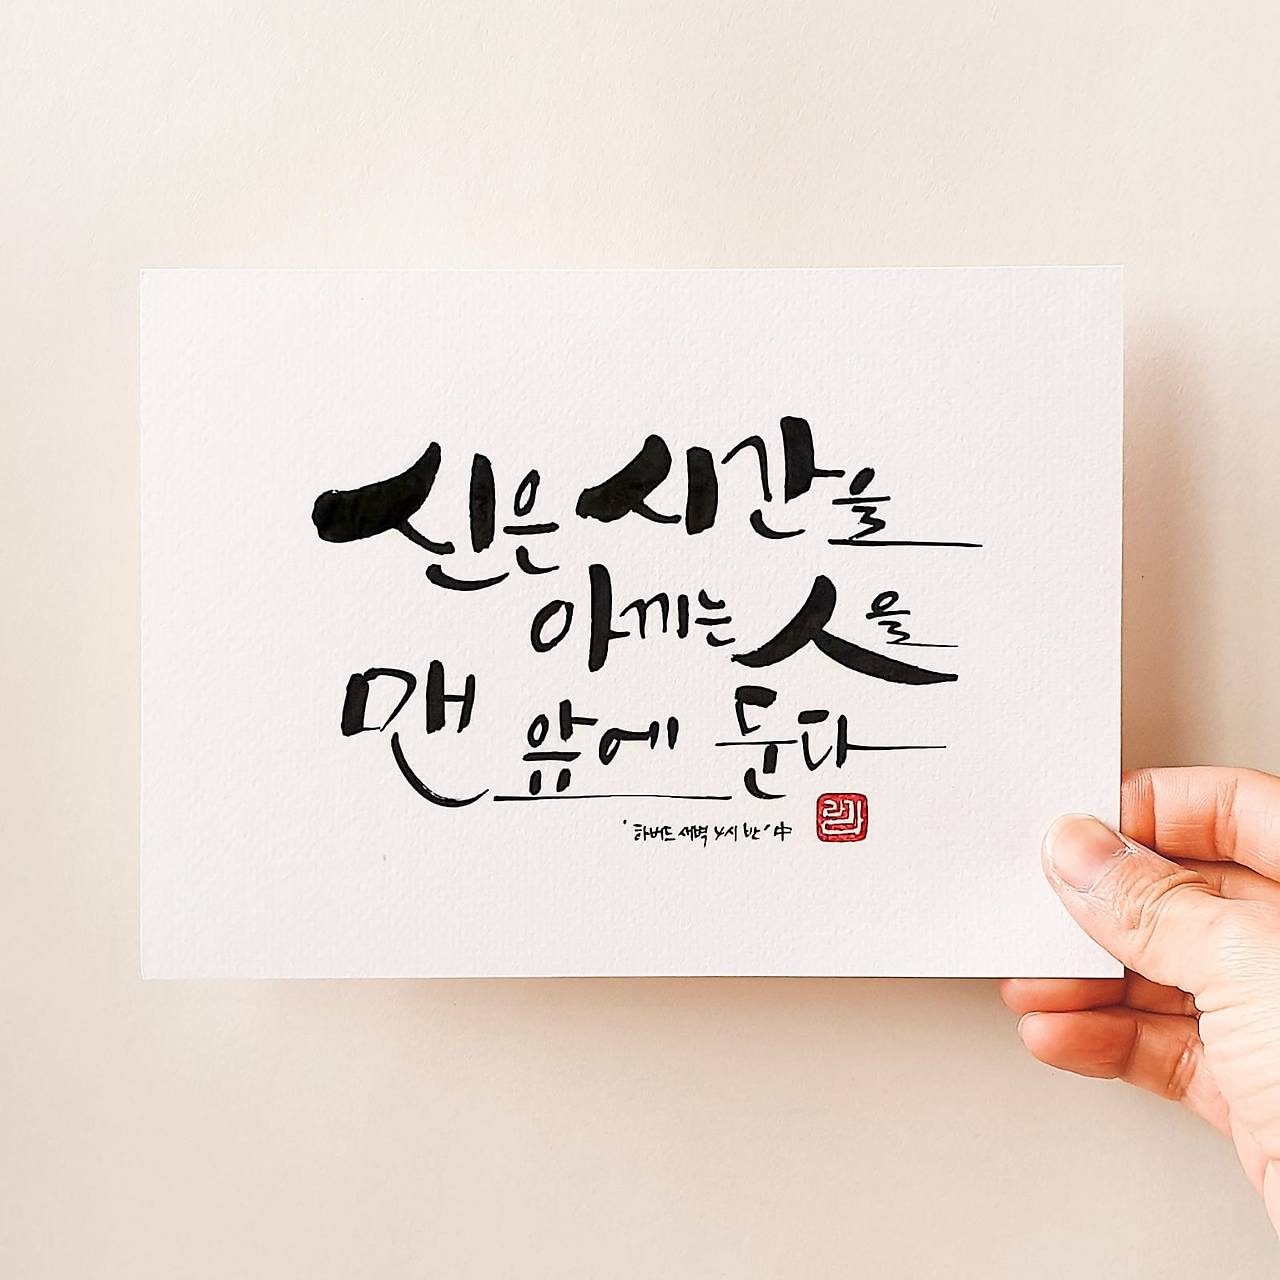 신은 시간을
아끼는 人을
맨 앞에 둔다
'하버드 새벽 4시 반' 中